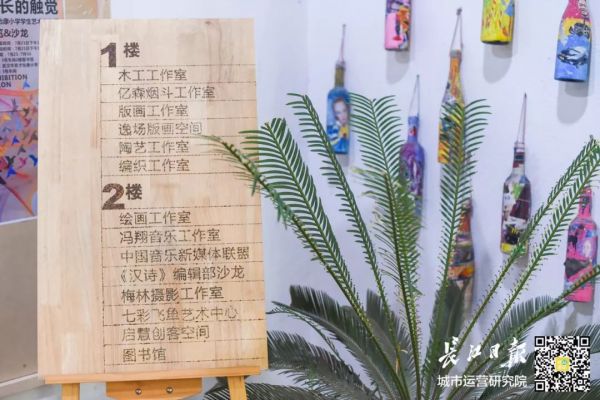 长的触觉
1楼
木工工作室
亿森烟斗工作室
版画工作室
逸场版画空间
陶艺工作室
编织工作室
2楼
绘画工作室
冯翔音乐工作室
中国音乐新媒体联盟
《汉诗》编辑部沙龙
梅林摄影工作室
七彩飞鱼艺术中心
启慧创客空间
图书馆
长江日报
城市运营研究院